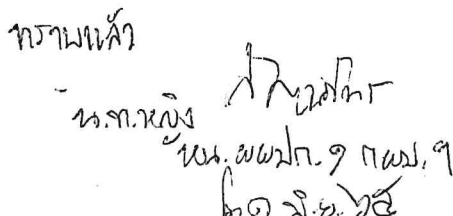 ทราบแล้ว
น.ท.หญิง
หน. ผผปก.๑ กผป.ฯ
๒๑ มิ.ย. ๖๕